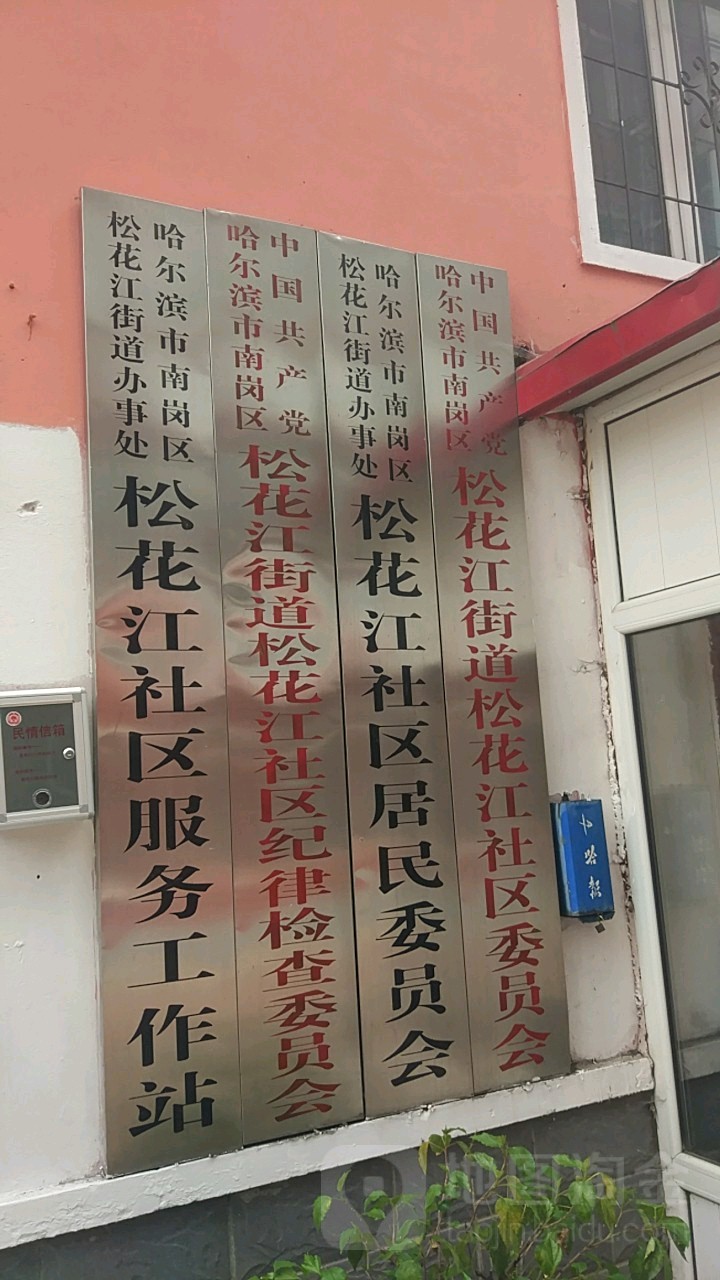 中国共产党
哈尔滨市南岗区
松花江街道松花江社区委员会
哈尔滨市南岗区
松花江街道办事处
松花江社区居民委员会
中国共产党
哈尔滨市南岗区
松花江街道松花江社区纪律检查委员会
哈尔滨市南岗区
松花江街道办事处
松花江社区服务工作站
民情信箱
地图淘金
taojin.baidu.com